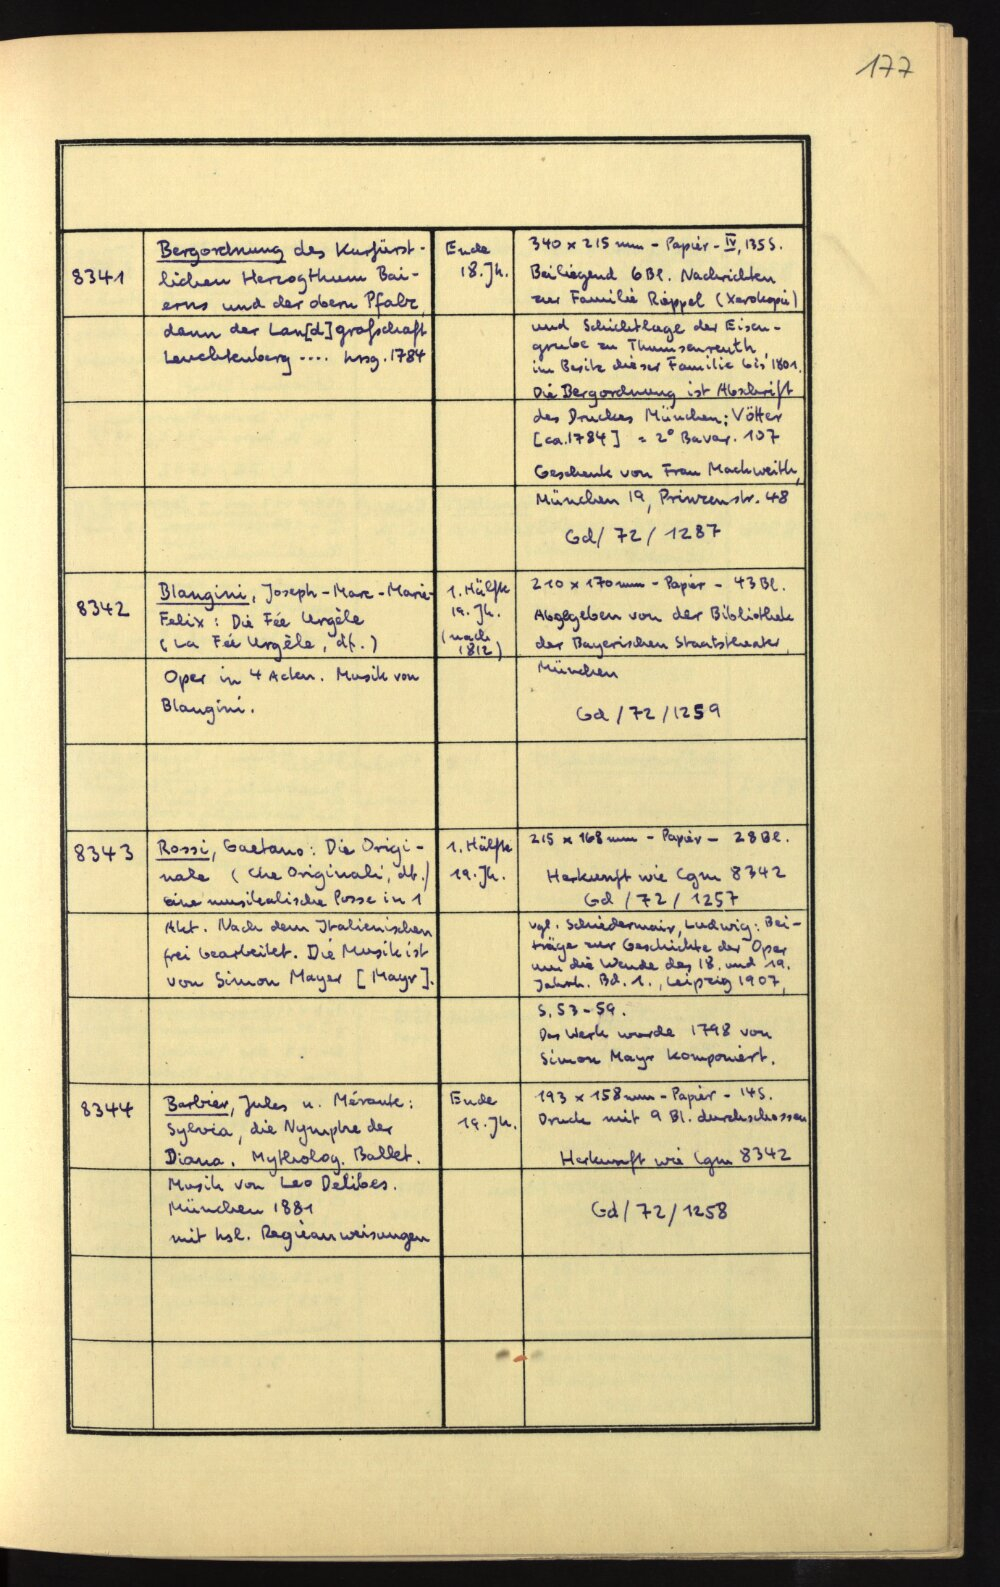 177
8341
Bergordnung des Kurfürst-
lichen Herzogthum Bai-
erns und der obern Pfalz,
dann der Lan[d]grafschaft
Leuchtenberg .... hrsg. 1784
Ende
18. Jh.
340 x 215 mm - Papier - IV, 135 S.
Beiliegend 6 Bl. Nachrichten
zur Familie Rieppel (Xerokopie)
und Schichtlage der Eisen-
grube zu Thumsenreuth,
im Besitz dieser Familie bis 1801.
Die Bergordnung ist Abschrift
des Druckes München: Vötter
[ca. 1784] = 2° Bavar. 107
Geschenk von Frau Machweith,
München 19, Prinzenstr. 48
Gd / 72 / 1287
8342
Blangini, Joseph-Marc-Marie-
Felix: Die Fée Urgèle
(La Fée Urgèle, dt.)
Oper in 4 Acten. Musik von
Blangini.
1. Hälfte
19. Jh.
(nach
1812)
210 x 170 mm - Papier - 43 Bl.
Abgegeben von der Bibliothek
der Bayerischen Staatstheater,
München
Gd / 72 / 1259
8343
Rossi, Gaetano: Die Origi-
nale (Che Originali, dt.)
eine musikalische Posse in 1
Akt. Nach dem Italienischen
frei bearbeitet. Die Musik ist
von Simon Mayer [Mayr].
1. Hälfte
19. Jh.
215 x 168 mm - Papier - 28 Bl.
Herkunft wie Cgm 8342
Gd / 72 / 1257
vgl. Schiedermair, Ludwig: Bei-
träge zur Geschichte der Oper
um die Wende des 18. und 19.
Jahrh. Bd. 1., Leipzig 1907,
S. 53-59.
Das Werk wurde 1798 von
Simon Mayr komponiert.
8344
Barbier, Jules u. Mérante:
Sylvia, die Nymphe der
Diana. Mytholog. Ballet.
Musik von Leo Delibes.
München 1881
mit hsl. Regieanweisungen
Ende
19. Jh.
193 x 158 mm - Papier - 14 S.
Druck mit 9 Bl. durchschossen
Herkunft wie Cgm 8342
Gd / 72 / 1258